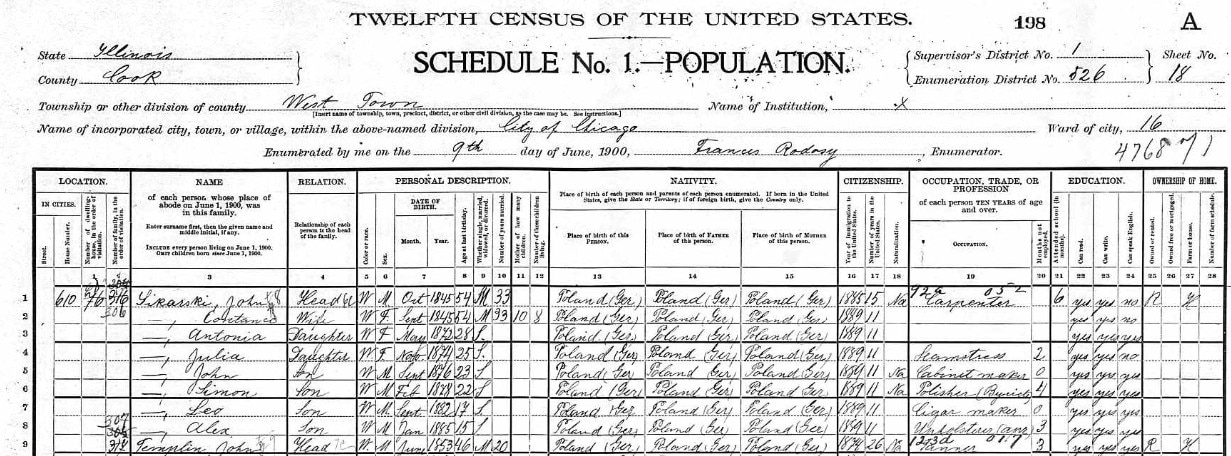 TWELFTH CENSUS OF THE UNITED STATES.
198 A
SCHEDULE No. 1.—POPULATION.
State Illinois
County Cook
Supervisor's District No. 1
Enumeration District No. 526
Sheet No. 18
Township or other division of county West Town Name of Institution, X
[Insert name of township, town, precinct, district, or other civil division, as the case may be. See instructions.]
Name of incorporated city, town, or village, within the above-named division, City of Chicago Ward of city, 16
Enumerated by me on the 9th day of June, 1900, Francis Rodosy Enumerator.
4768
LOCATION. NAME RELATION. PERSONAL DESCRIPTION. NATIVITY. CITIZENSHIP. OCCUPATION, TRADE, OR PROFESSION EDUCATION. OWNERSHIP OF HOME.
IN CITIES. Street. House Number. Number of dwelling-house, in the order of visitation. Number of family, in the order of visitation.
of each person whose place of abode on June 1, 1900, was in this family.
Enter surname first, then the given name and middle initial, if any.
INCLUDE every person living on June 1, 1900. OMIT children born since June 1, 1900.
Relationship of each person to the head of the family.
Color or race. Sex. DATE OF BIRTH. Month. Year. Age at last birthday. Whether single, married, widowed, or divorced. Number of years married. Mother of how many children. Number of these children living.
Place of birth of each person and parents of each person enumerated. If born in the United States, give the State or Territory; if of foreign birth, give the Country only.
Place of birth of this PERSON. Place of birth of FATHER of this person. Place of birth of MOTHER of this person.
Year of immigration to the United States. Number of years in the United States. Naturalization.
of each person TEN YEARS of age and over.
OCCUPATION. Months not employed.
Attended school (in months). Can read. Can write. Can speak English.
Owned or rented. Owned free or mortgaged. Farm or house. Number of farm schedule.
3 4 5 6 7 8 9 10 11 12 13 14 15 16 17 18 19 20 21 22 23 24 25 26 27 28
1 610 76 316 Sikarski, John Head W M Oct 1845 54 M 33 Poland (Ger) Poland (Ger) Poland (Ger) 1885 15 Na Carpenter 6 yes yes no R H
2 306 —, Constance Wife W F Sept 1845 54 M 33 10 8 Poland (Ger) Poland (Ger) Poland (Ger) 1889 11 yes yes no
3 —, Antonia Daughter W F May 1872 28 S Poland (Ger) Poland (Ger) Poland (Ger) 1889 11 yes yes yes
4 —, Julia Daughter W F Nov 1874 25 S Poland (Ger) Poland (Ger) Poland (Ger) 1889 11 Seamstress 2 yes yes no
5 —, John Son W M Sept 1876 23 S Poland (Ger) Poland (Ger) Poland (Ger) 1889 11 Na Cabinet maker 0 yes yes yes
6 —, Simon Son W M Feb 1878 22 S Poland (Ger) Poland (Ger) Poland (Ger) 1889 11 Na Polisher 4 yes yes yes
7 —, Leo Son W M Sept 1882 17 S Poland (Ger) Poland (Ger) Poland (Ger) 1889 11 Cigar maker 0 yes yes yes
8 307 —, Alex Son W M Jan 1885 15 S Poland (Ger) Poland (Ger) Poland (Ger) 1889 11 3 yes yes yes
9 Templin, John Head W M 1853 46 M 20 Poland (Ger) Poland (Ger) Poland (Ger) 1874 26 Na Tanner 3 yes yes yes R H